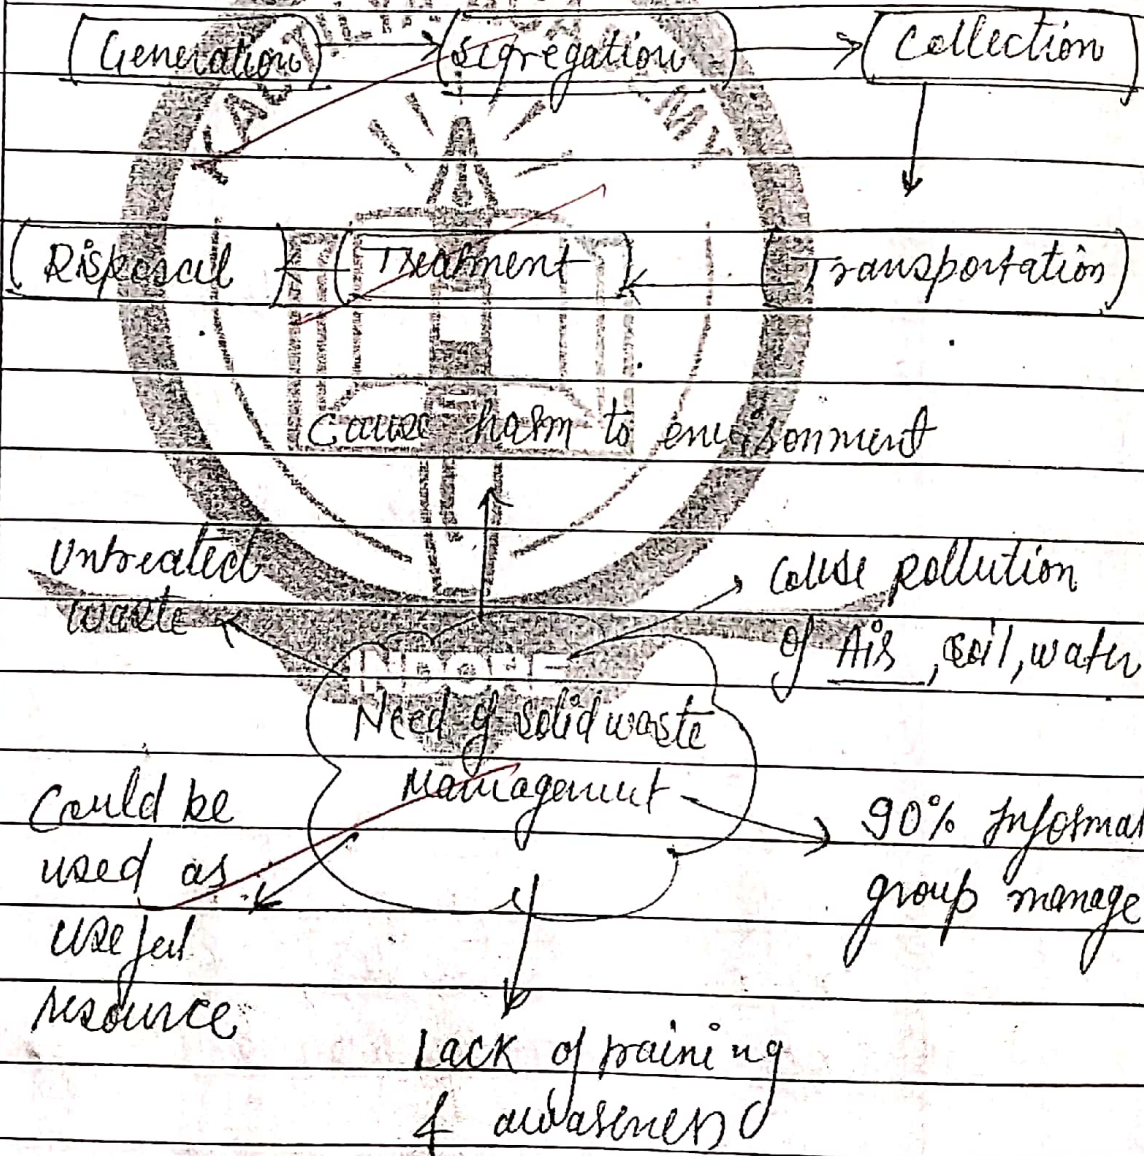 Generation → Segregation → Collection
Disposal ← Treatment ← Transportation
cause harm to environment
Untreated
waste
cause pollution
of Air, soil, water
INDORE
Need of solid waste
Management
Could be
used as
useful
resource
90% Informal
group manage
Lack of training
& awareness